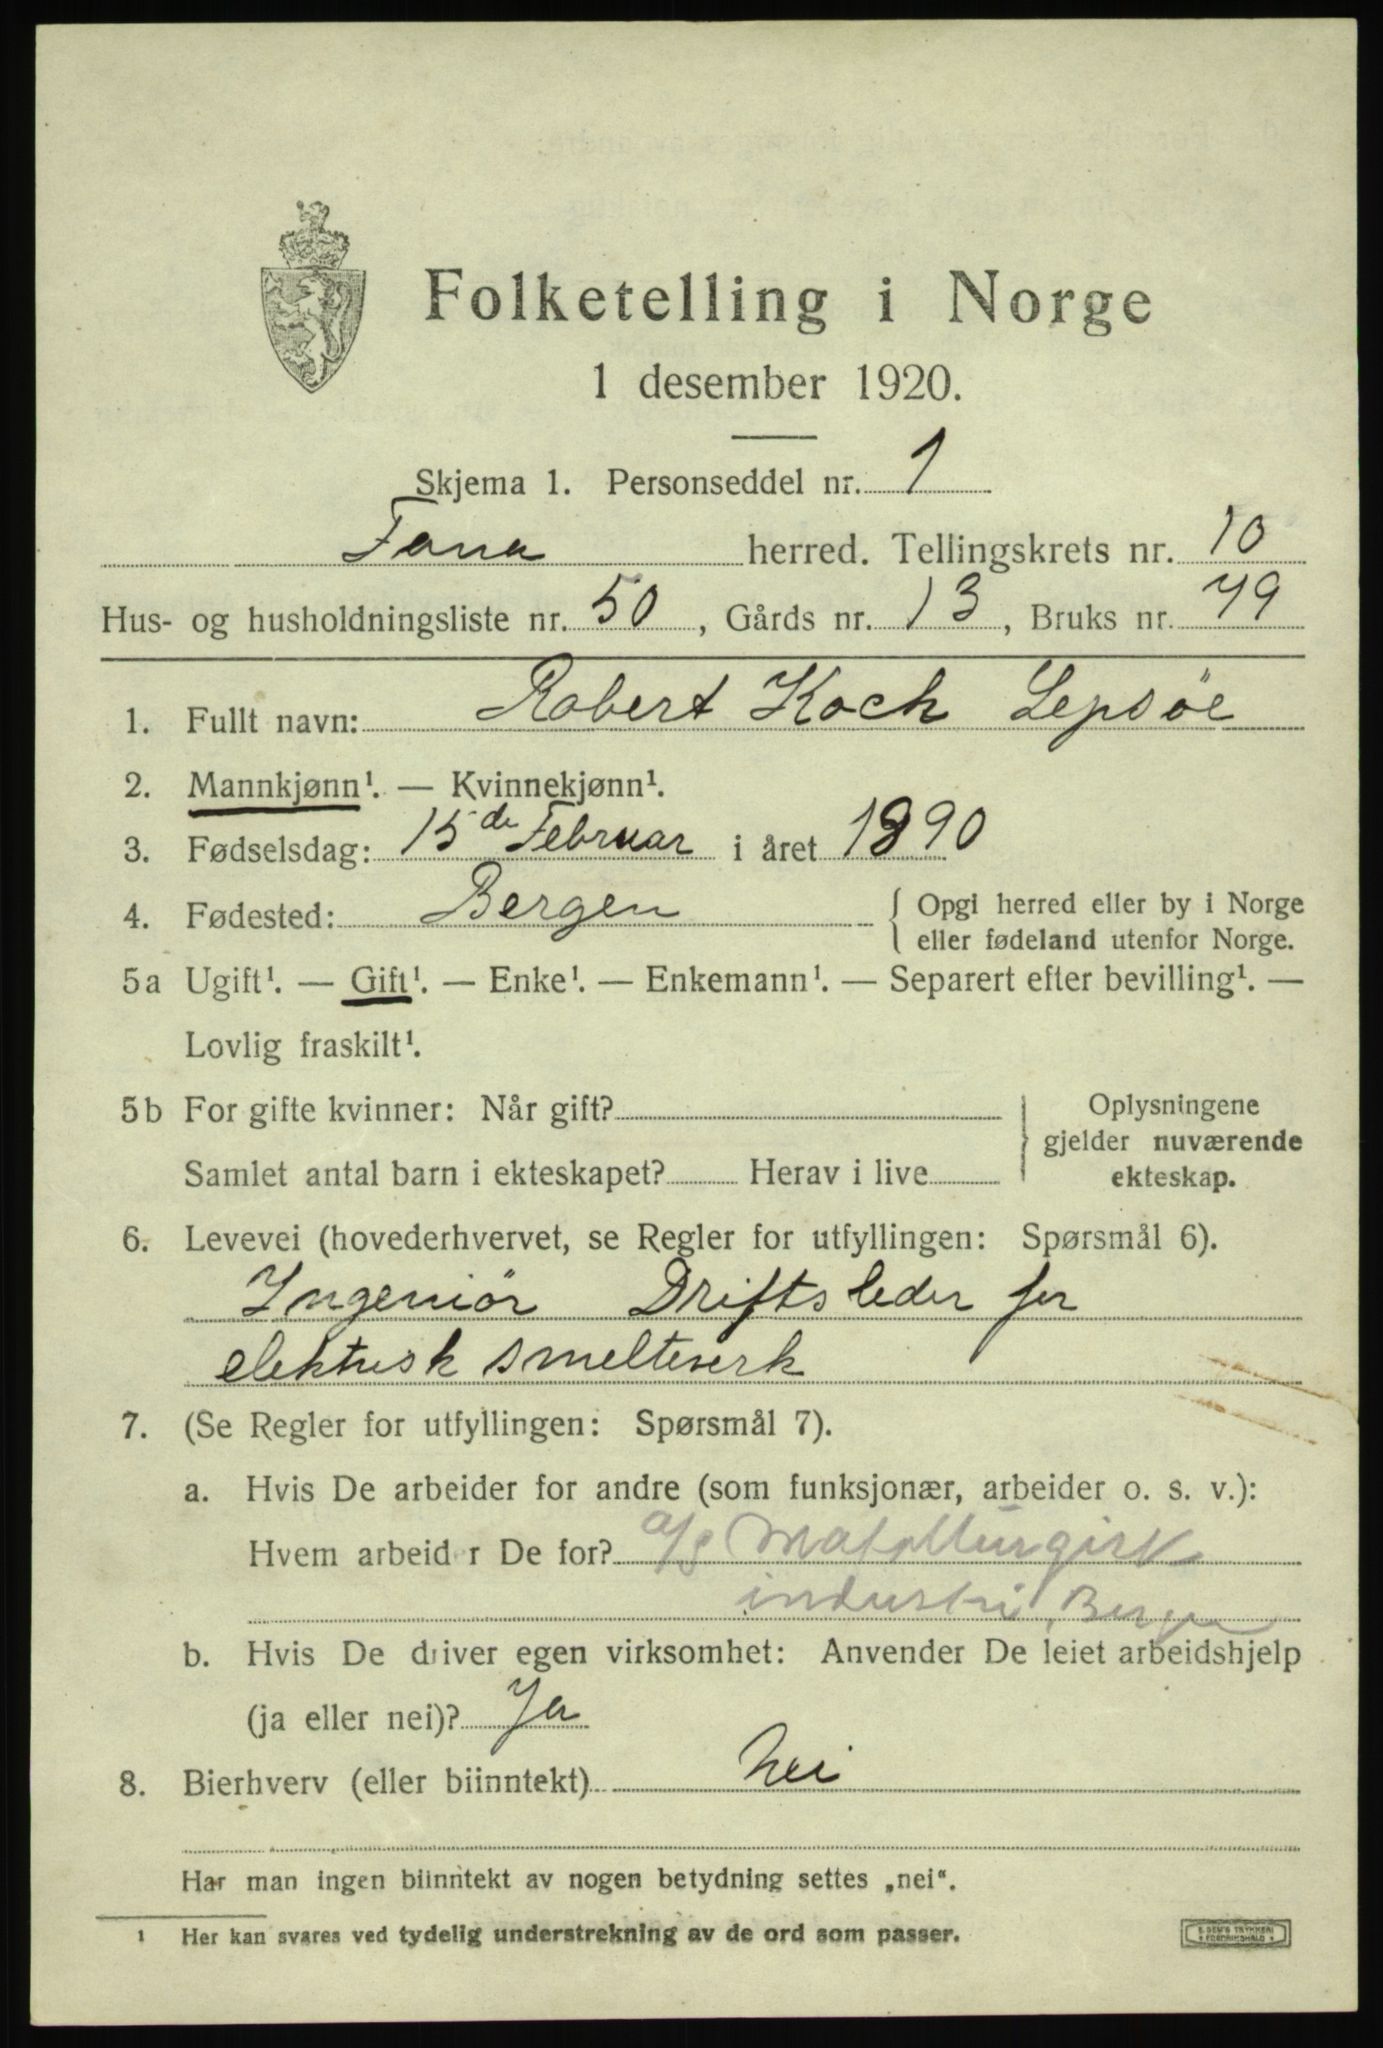 Folketelling i Norge
1 desember 1920.
Skjema 1. Personseddel nr. 1
Fana herred. Tellingskrets nr. 10
Hus- og husholdningsliste nr. 50, Gårds nr. 13, Bruks nr. 79
1. Fullt navn: Robert Koch Lepsöe
2. Mannkjønn¹. — Kvinnekjønn¹.
3. Fødselsdag: 15de Februar i året 1890
4. Fødested: Bergen { Opgi herred eller by i Norge
eller fødeland utenfor Norge.
5a Ugift¹. — Gift¹. — Enke¹. — Enkemann¹. — Separert efter bevilling¹. —
Lovlig fraskilt¹.
5b For gifte kvinner: Når gift? } Oplysningene
gjelder nuværende
Samlet antal barn i ekteskapet? Herav i live ekteskap.
6. Levevei (hovederhvervet, se Regler for utfyllingen: Spørsmål 6).
Ingeniör Driftsleder for
elektrisk smelteverk
7. (Se Regler for utfyllingen: Spørsmål 7).
a. Hvis De arbeider for andre (som funksjonær, arbeider o. s. v.):
Hvem arbeider De for? a/s Metallurgisk
industri, Bergen
b. Hvis De driver egen virksomhet: Anvender De leiet arbeidshjelp
(ja eller nei)? Ja
8. Bierhverv (eller biinntekt) Nei
Har man ingen biinntekt av nogen betydning settes „nei“.
¹ Her kan svares ved tydelig understrekning av de ord som passer.
E. SEM'S TRYKKERI
FREDRIKSHALD